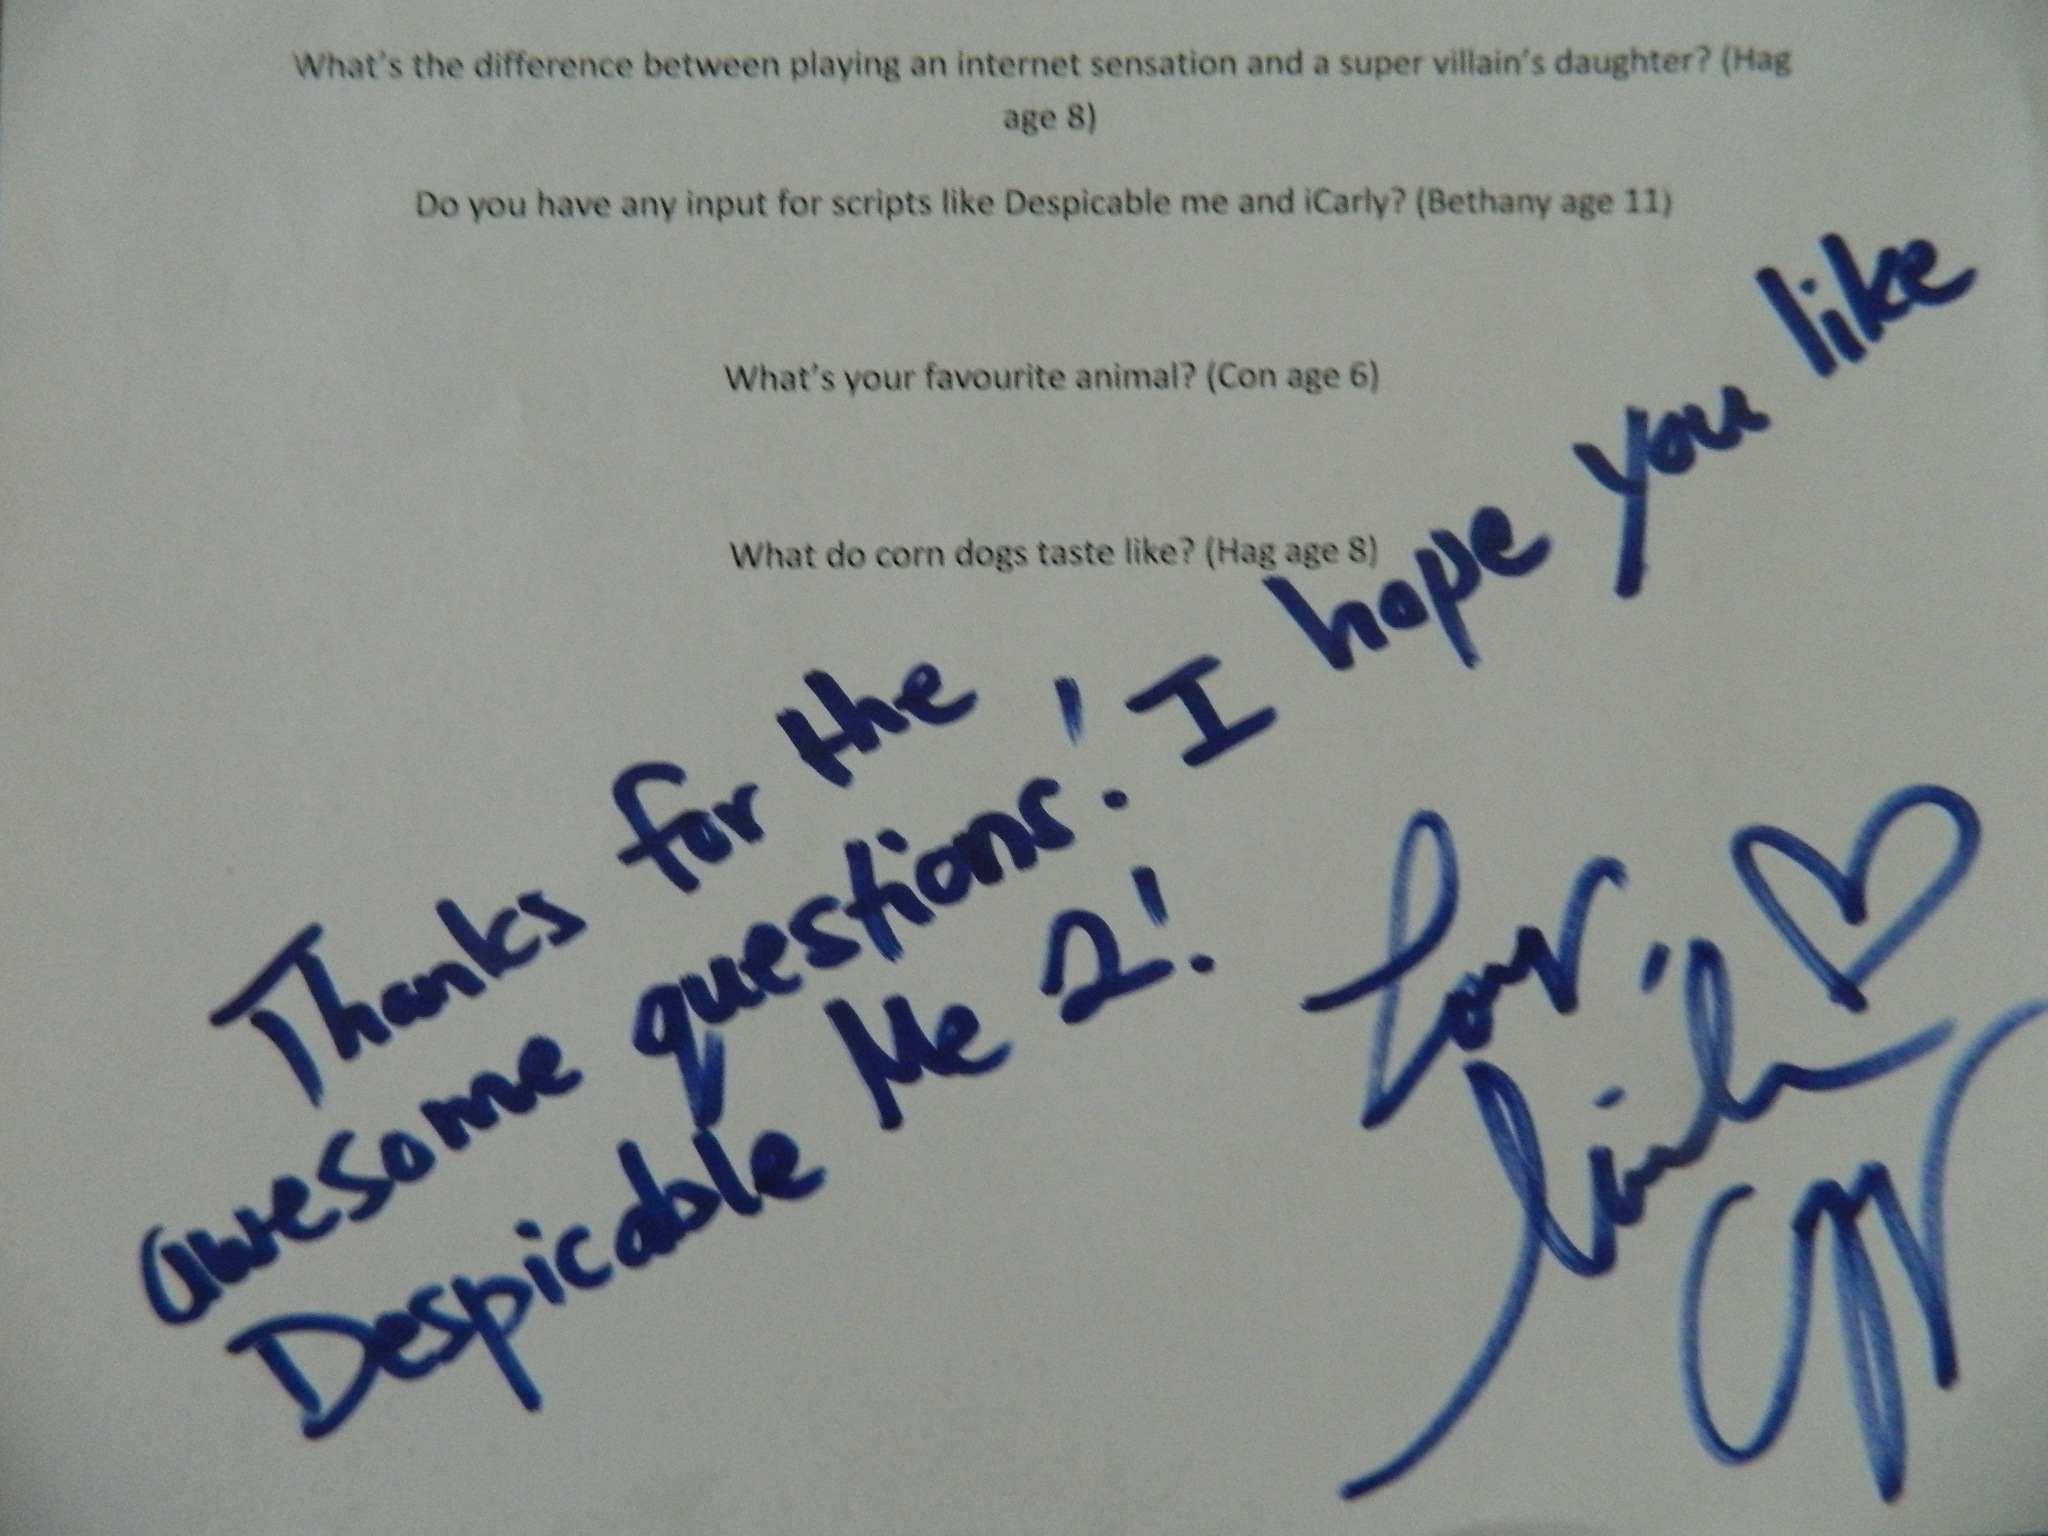 What's the difference between playing an internet sensation and a super villain's daughter? (Hag
age 8)
Do you have any input for scripts like Despicable me and iCarly? (Bethany age 11)
What's your favourite animal? (Con age 6)
What do corn dogs taste like? (Hag age 8)
Thanks for the
awesome questions! I hope you like
Despicable Me 2!
Love,